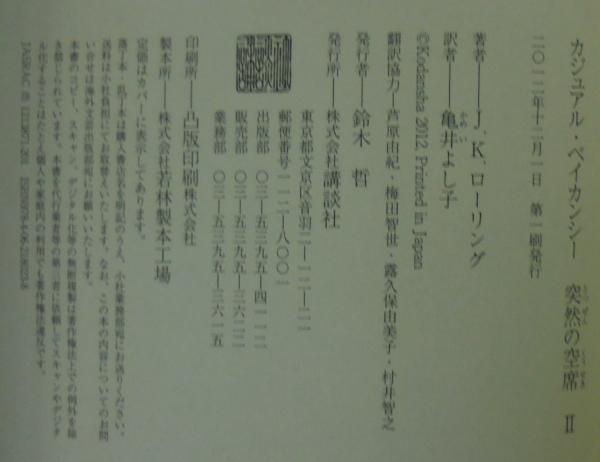 カジュアル・ベイカンシー 突然の空席 Ⅱ
とつぜん くうせき
二〇一二年十二月一日 第一刷発行
著者──J.K.ローリング
訳者──亀井よし子
かめい
©Kodansha 2012, Printed in Japan
翻訳協力─芦原由紀・梅田智世・露久保由美子・村井智之
発行者──鈴木 哲
発行所──株式会社講談社
東京都文京区音羽二─一二─二一
郵便番号一一二─八〇〇一
出版部 〇三─五三九五─四一一二
販売部 〇三─五三九五─三六二二
業務部 〇三─五三九五─三六一五
印刷所──凸版印刷株式会社
製本所──株式会社若林製本工場
定価はカバーに表示してあります。
落丁本・乱丁本は購入書店名を明記のうえ、小社業務部宛にお送りください。
送料は小社負担にてお取替えいたします。なお、この本の内容についてのお問
い合せは海外文芸出版部宛にお願いいたします。
本書のコピー、スキャン、デジタル化等の無断複製は著作権法上での例外を除
き禁じられています。本書を代行業者等の第三者に依頼してスキャンやデジタ
ル化することはたとえ個人や家庭内の利用でも著作権法違反です。
JASRAC 出